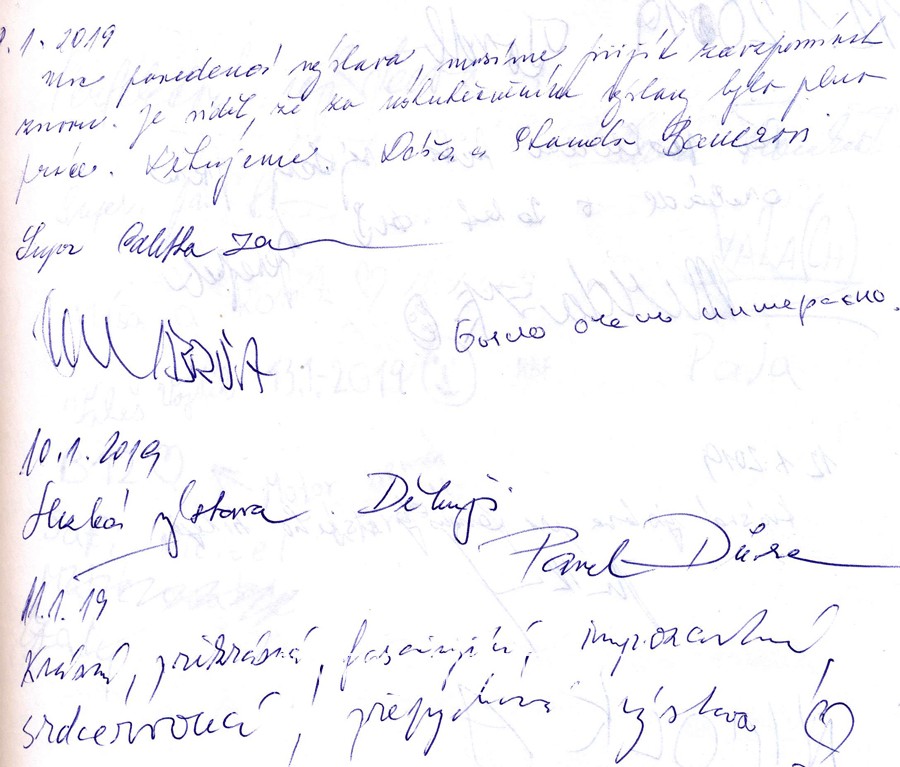 .1. 2019
povedená výstava, musíme přijít zavzpomínat
znovu. Je vidět, že za uskutečněním výstavy bylo plno
práce. Děkujeme. a Standa
Super
Было очень интересно.
10.1.2019
Hezká výstava. Děkuji
Pavel
11.1.19
Krásná, překrásná, fascinující, impozantní,
srdcervoucí, přepychová výstava ♡